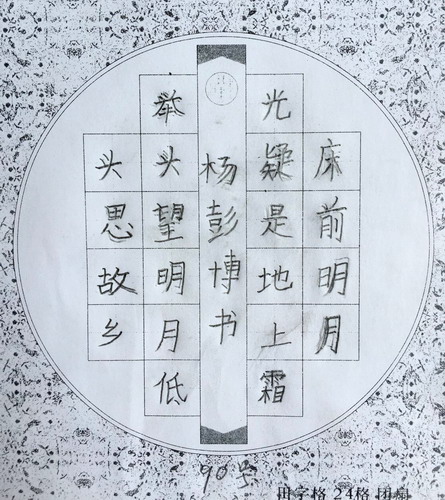 床前明月
光疑是地上霜
举头望明月低
头思故乡
杨彭博书
90号
田字格 24格 团扇